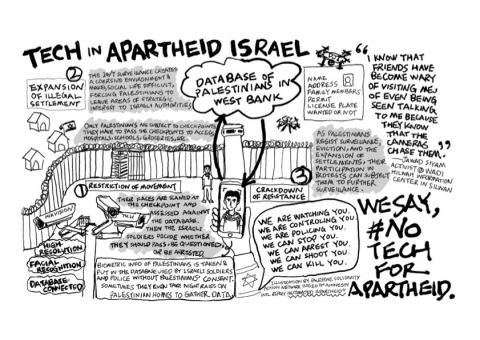 TECH IN APARTHEID ISRAEL
②
EXPANSION
OF ILLEGAL
SETTLEMENT
THE 24/7 SURVEILLANCE CREATES
A COERSIVE ENVIRONMENT &
MAKES SOCIAL LIFE DIFFICULT,
FORCING PALESTINIANS TO
LEAVE AREAS OF STRATEGIC
INTEREST TO ISRAELI AUTHORITIES.
DATABASE OF
PALESTINIANS IN
WEST BANK
NAME
ADDRESS
FAMILY MEMBERS
PERMIT
LICENSE PLATE
WANTED OR NOT
"I KNOW THAT
FRIENDS HAVE
BECOME WARY
OF VISITING ME,
OF EVEN BEING
SEEN TALKING
TO ME BECAUSE
THEY KNOW
THAT THE
CAMERAS
CHASE THEM."
- JAWAD SIYAM
ACTIVIST @ WADI
HILWEH INFORMATION
CENTER IN SILWAN
ONLY PALESTINIANS ARE SUBJECT TO CHECKPOINTS.
THEY HAVE TO PASS THE CHECKPOINTS TO ACCESS
HOSPITALS, SCHOOLS, GROCERIES, ETC.
AS PALESTINIANS
RESIST SURVEILLANCE,
EVICTION, AND THE
EXPANSION OF
SETTLEMENTS, THEIR
PARTICIPATION IN
PROTESTS CAN SUBJECT
THEM TO FURTHER
SURVEILLANCE.
①
RESTRICTION OF MOVEMENT
THEIR FACES ARE SCANNED AT
THE CHECKPOINT AND
ASSESSED AGAINST
THE DATABASE.
SOLDIERS DECIDE WHETHER
THEY SHOULD PASS, BE QUESTIONED
OR BE ARRESTED
HIKVISION
TKH
HIGH-
RESOLUTION
FACIAL
RECOGNITION
DATABASE-
CONNECTED
BIOMETRIC INFO OF PALESTINIANS IS TAKEN &
PUT IN THE DATABASE USED BY ISRAELI SOLDIERS
AND POLICE WITHOUT PALESTINIANS' CONSENT.
SOMETIMES THEY EVEN TAKE NIGHT RAIDS ON
PALESTINIAN HOMES TO GATHER DATA.
③
CRACKDOWN
OF RESISTANCE
WE ARE WATCHING YOU.
WE ARE CONTROLING YOU
WE ARE POLICING YOU.
WE CAN STOP YOU.
WE CAN ARREST YOU.
WE CAN SHOOT YOU.
WE CAN KILL YOU.
WE SAY,
#NO
TECH
FOR
APARTHEID.
ILLUSTRATION BY PALESTINE SOLIDARITY
ACTION NETWORK BASED ON AMNESTY
INTL REPORT "AUTOMATED APARTHEID"